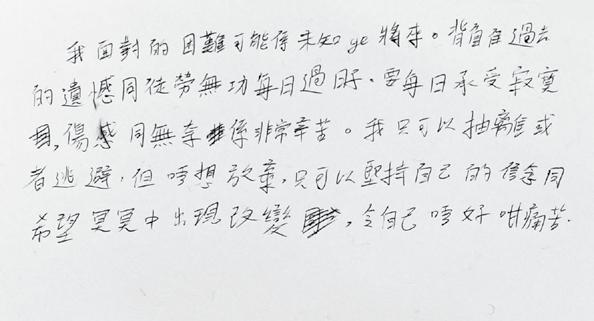 我面對的困難可能係未知 ye 將來。背負自過去
的遺憾同徒勞無功每日過日子，要每日承受寂寞
，傷感同無奈係非常辛苦。我只可以抽離或
者逃避，但唔想放棄，只可以堅持自己的信念同
希望冥冥中出現改變，令自己唔好咁痛苦.